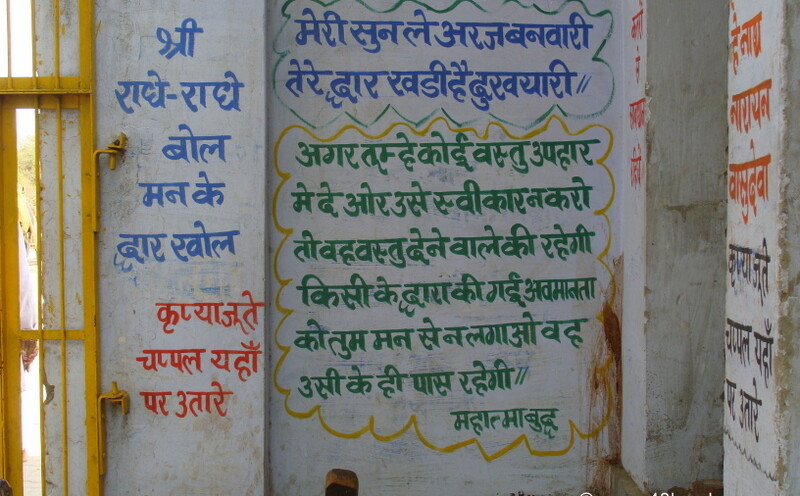 श्री
राधे-राधे
बोल
मन के
द्वार खोल
कृप्या जूते
चप्पल यहाँ
पर उतारे
मेरी सुन ले अरज बनवारी
तेरे द्वार खडी है दुखयारी //
अगर तुम्हे कोई वस्तु उपहार
मे दे ओर उसे स्वीकार न करो
तो वह वस्तु देने वाले की रहेगी
किसी के द्वारा की गई अवमानता
को तुम मन से न लगाओ वह
उसी के ही पास रहेगी //
महात्मा बुद्ध
हे नाथ
नारायन
वासुदेवा
कृप्या जूते
चप्पल यहाँ
पर उतारे